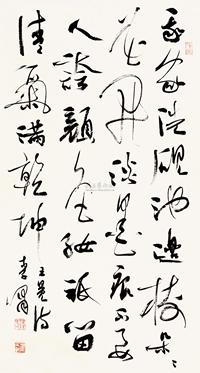 我家洗硯池邊樹朵〻
花開淡墨痕不要
人誇顏色好祇留
清氣滿乾坤
王冕詩